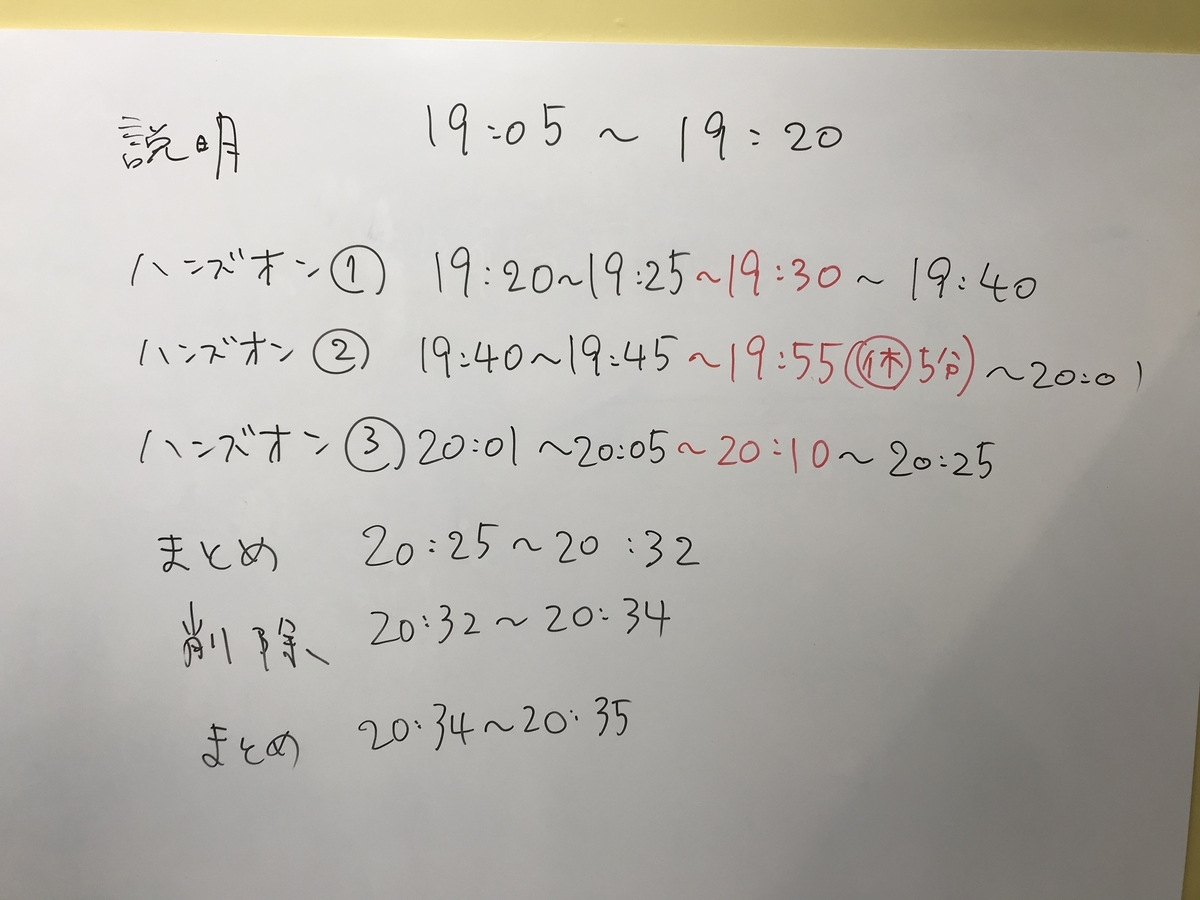 説明 19:05 ~ 19:20
ハンズオン① 19:20~19:25~19:30~19:40
ハンズオン② 19:40~19:45~19:55(㊡5分)~20:01
ハンズオン③ 20:01~20:05~20:10~20:25
まとめ 20:25~20:32
削除 20:32~20:34
まとめ 20:34~20:35